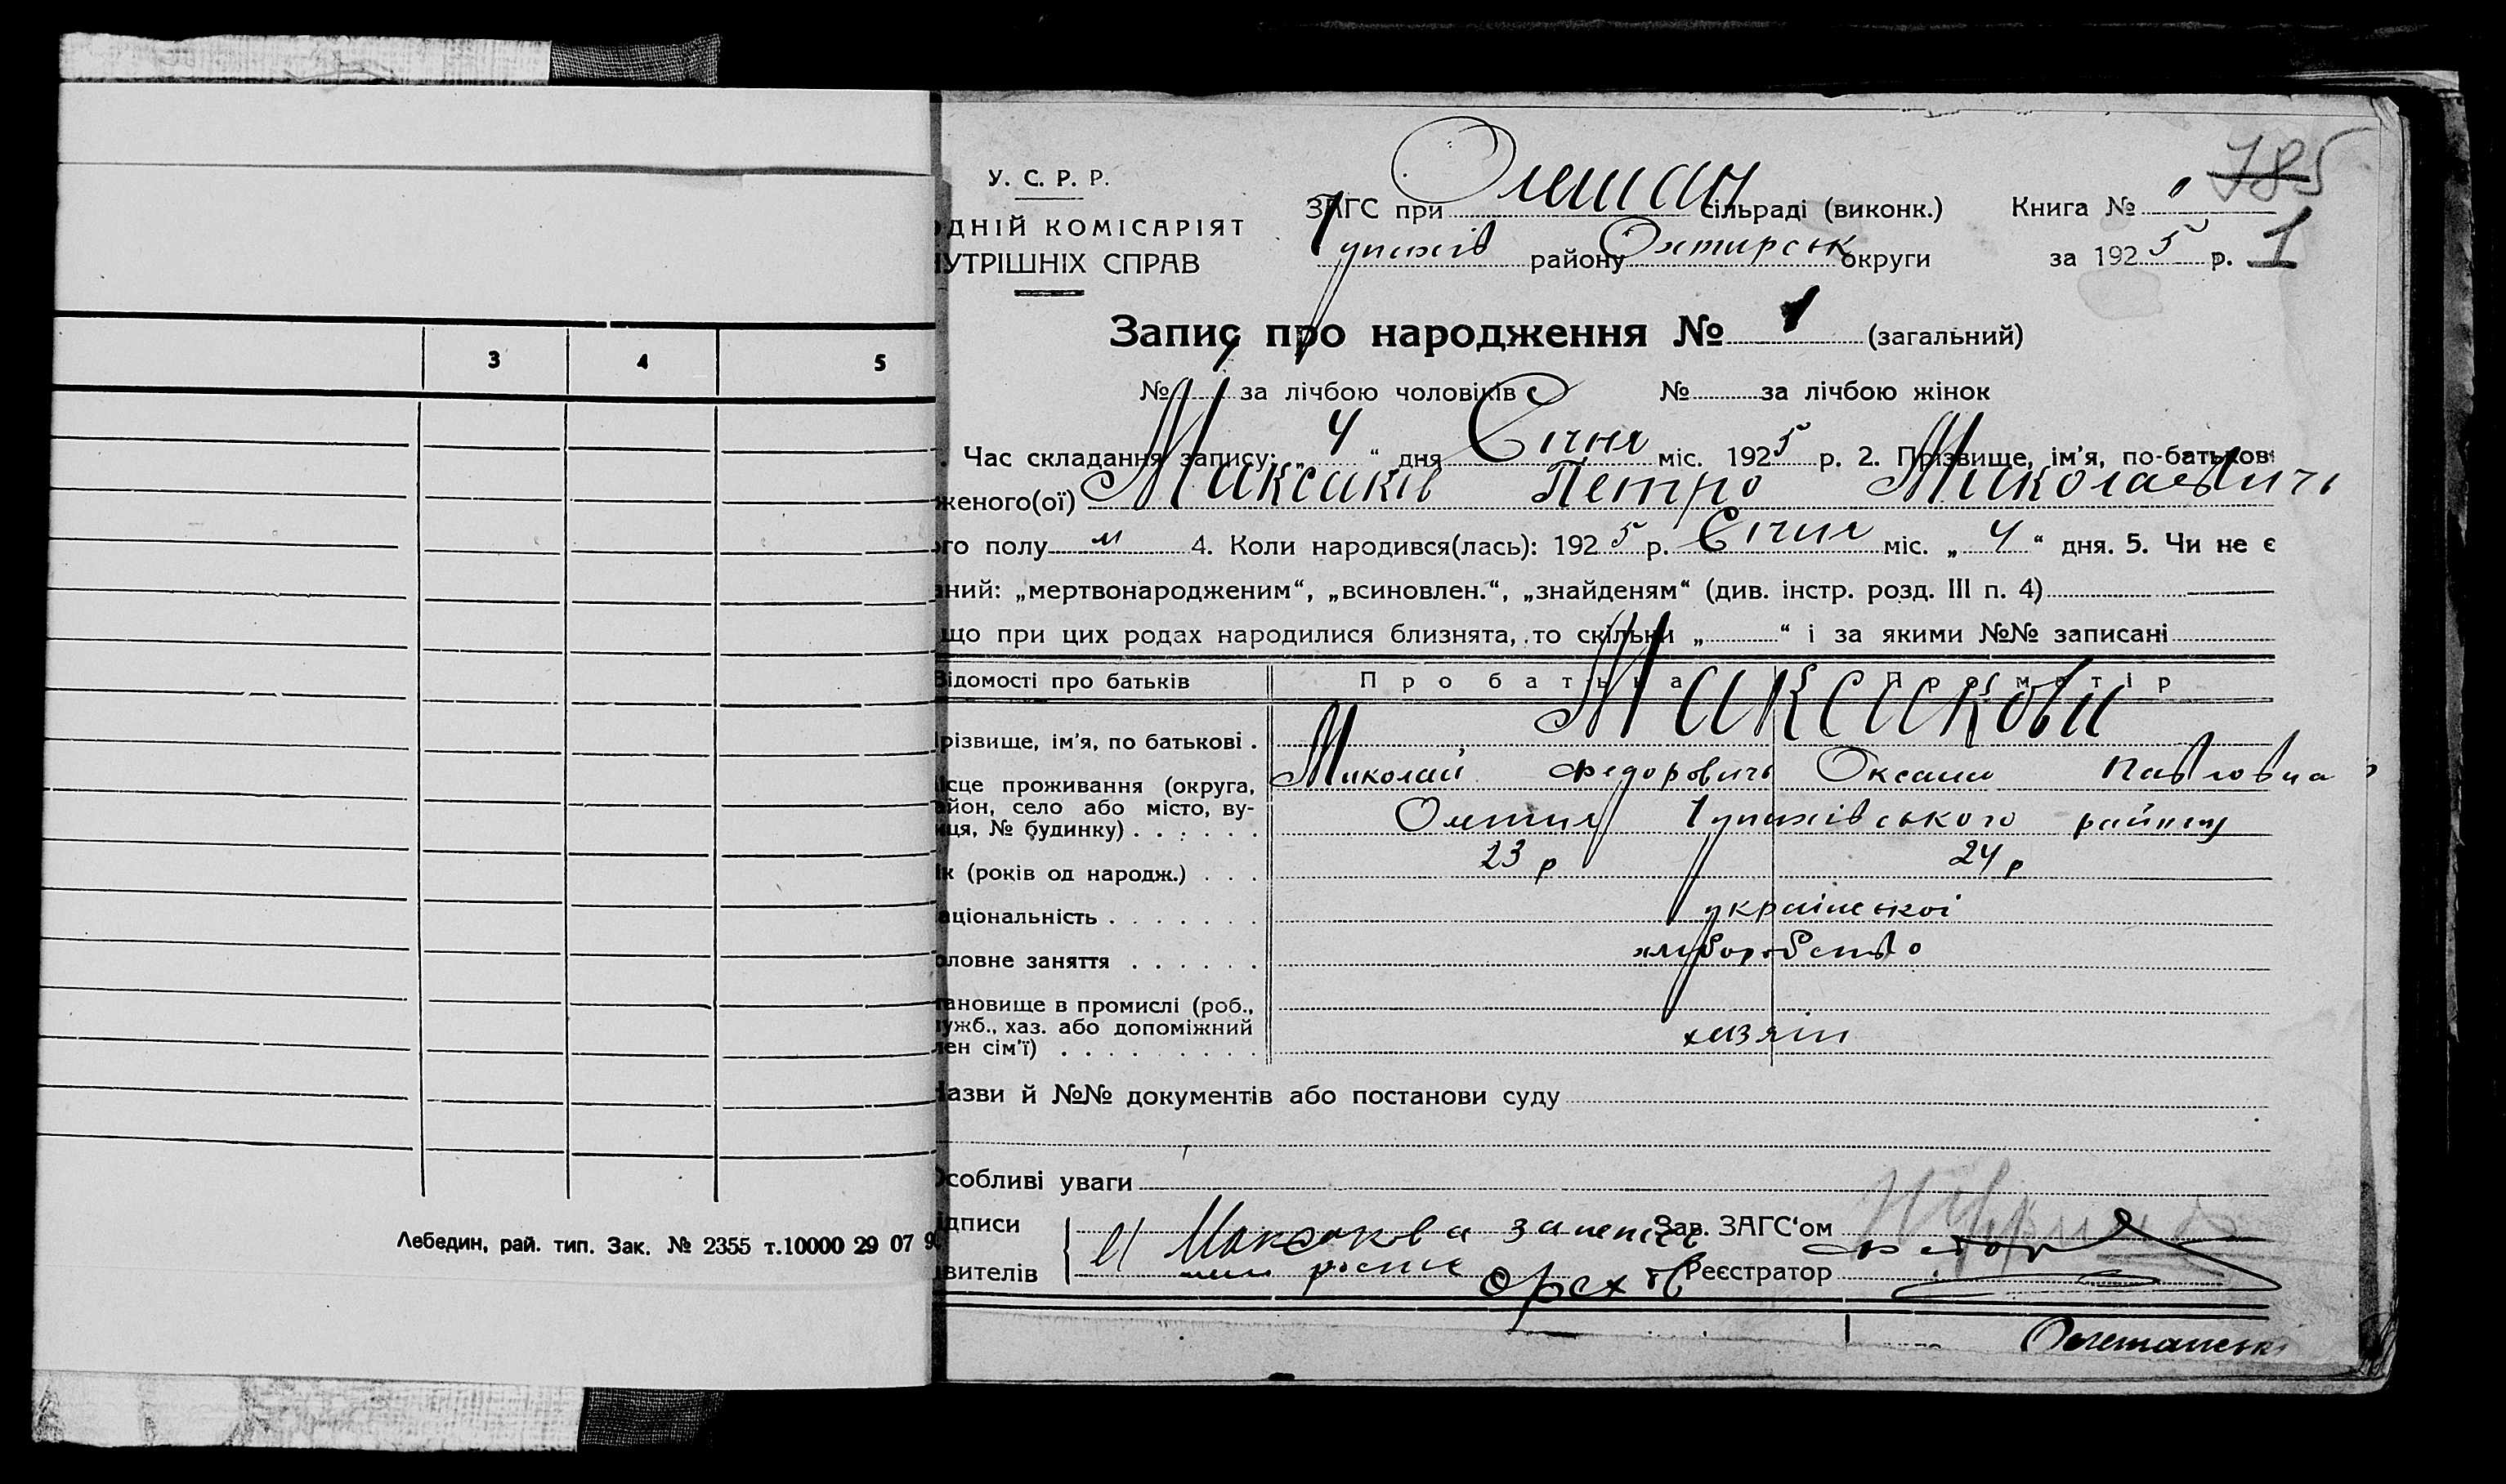 3 4 5
Лебедин, рай. тип. Зак. № 2355 т.10000 29 07 9
785
У. С. Р. Р.
ЗАГС при Олешан сільраді (виконк.) Книга №
1
ДНІЙ КОМІСАРІЯТ
Тупихів району Охтирськ округи за 1925 р.
УТРІШНІХ СПРАВ
Запис про народження № 1 (загальний)
№ 1 за лічбою чоловіків № за лічбою жінок
Час складання запису: „ 4 “ дня Січня міс. 1925 р. 2. Прізвище, ім’я, по-батькові
женого(ої) Максаків Петро Миколаевичь
го полу м 4. Коли народився(лась): 1925 р. Січня міс. „ 4 “ дня. 5. Чи не є
ний: „мертвонародженим“, „всиновлен.“, „знайденям“ (див. інстр. розд. III п. 4)
що при цих родах народилися близнята, то скільки „ “ і за якими №№ записані
Відомості про батьків Про батька Про матір
різвище, ім’я, по батькові . Максакови
Миколай Федоровичь Оксана Павловна
ісце проживання (округа,
айон, село або місто, ву-
иця, № будинку) . . . . . . Олешня Тупихівського району
ік (років од народж.) . . . 23 р 24 р
аціональність . . . . . . . української
оловне заняття . . . . . . хлиборобство
тановище в промислі (роб.,
ужб., хаз. або допоміжний
лен сім’ї) . . . . . . . . . хазяін
Назви й №№ документів або постанови суду
Особливі уваги
ідписи М Максакова Зав. ЗАГС‘ом
вителів Орехов Реєстратор